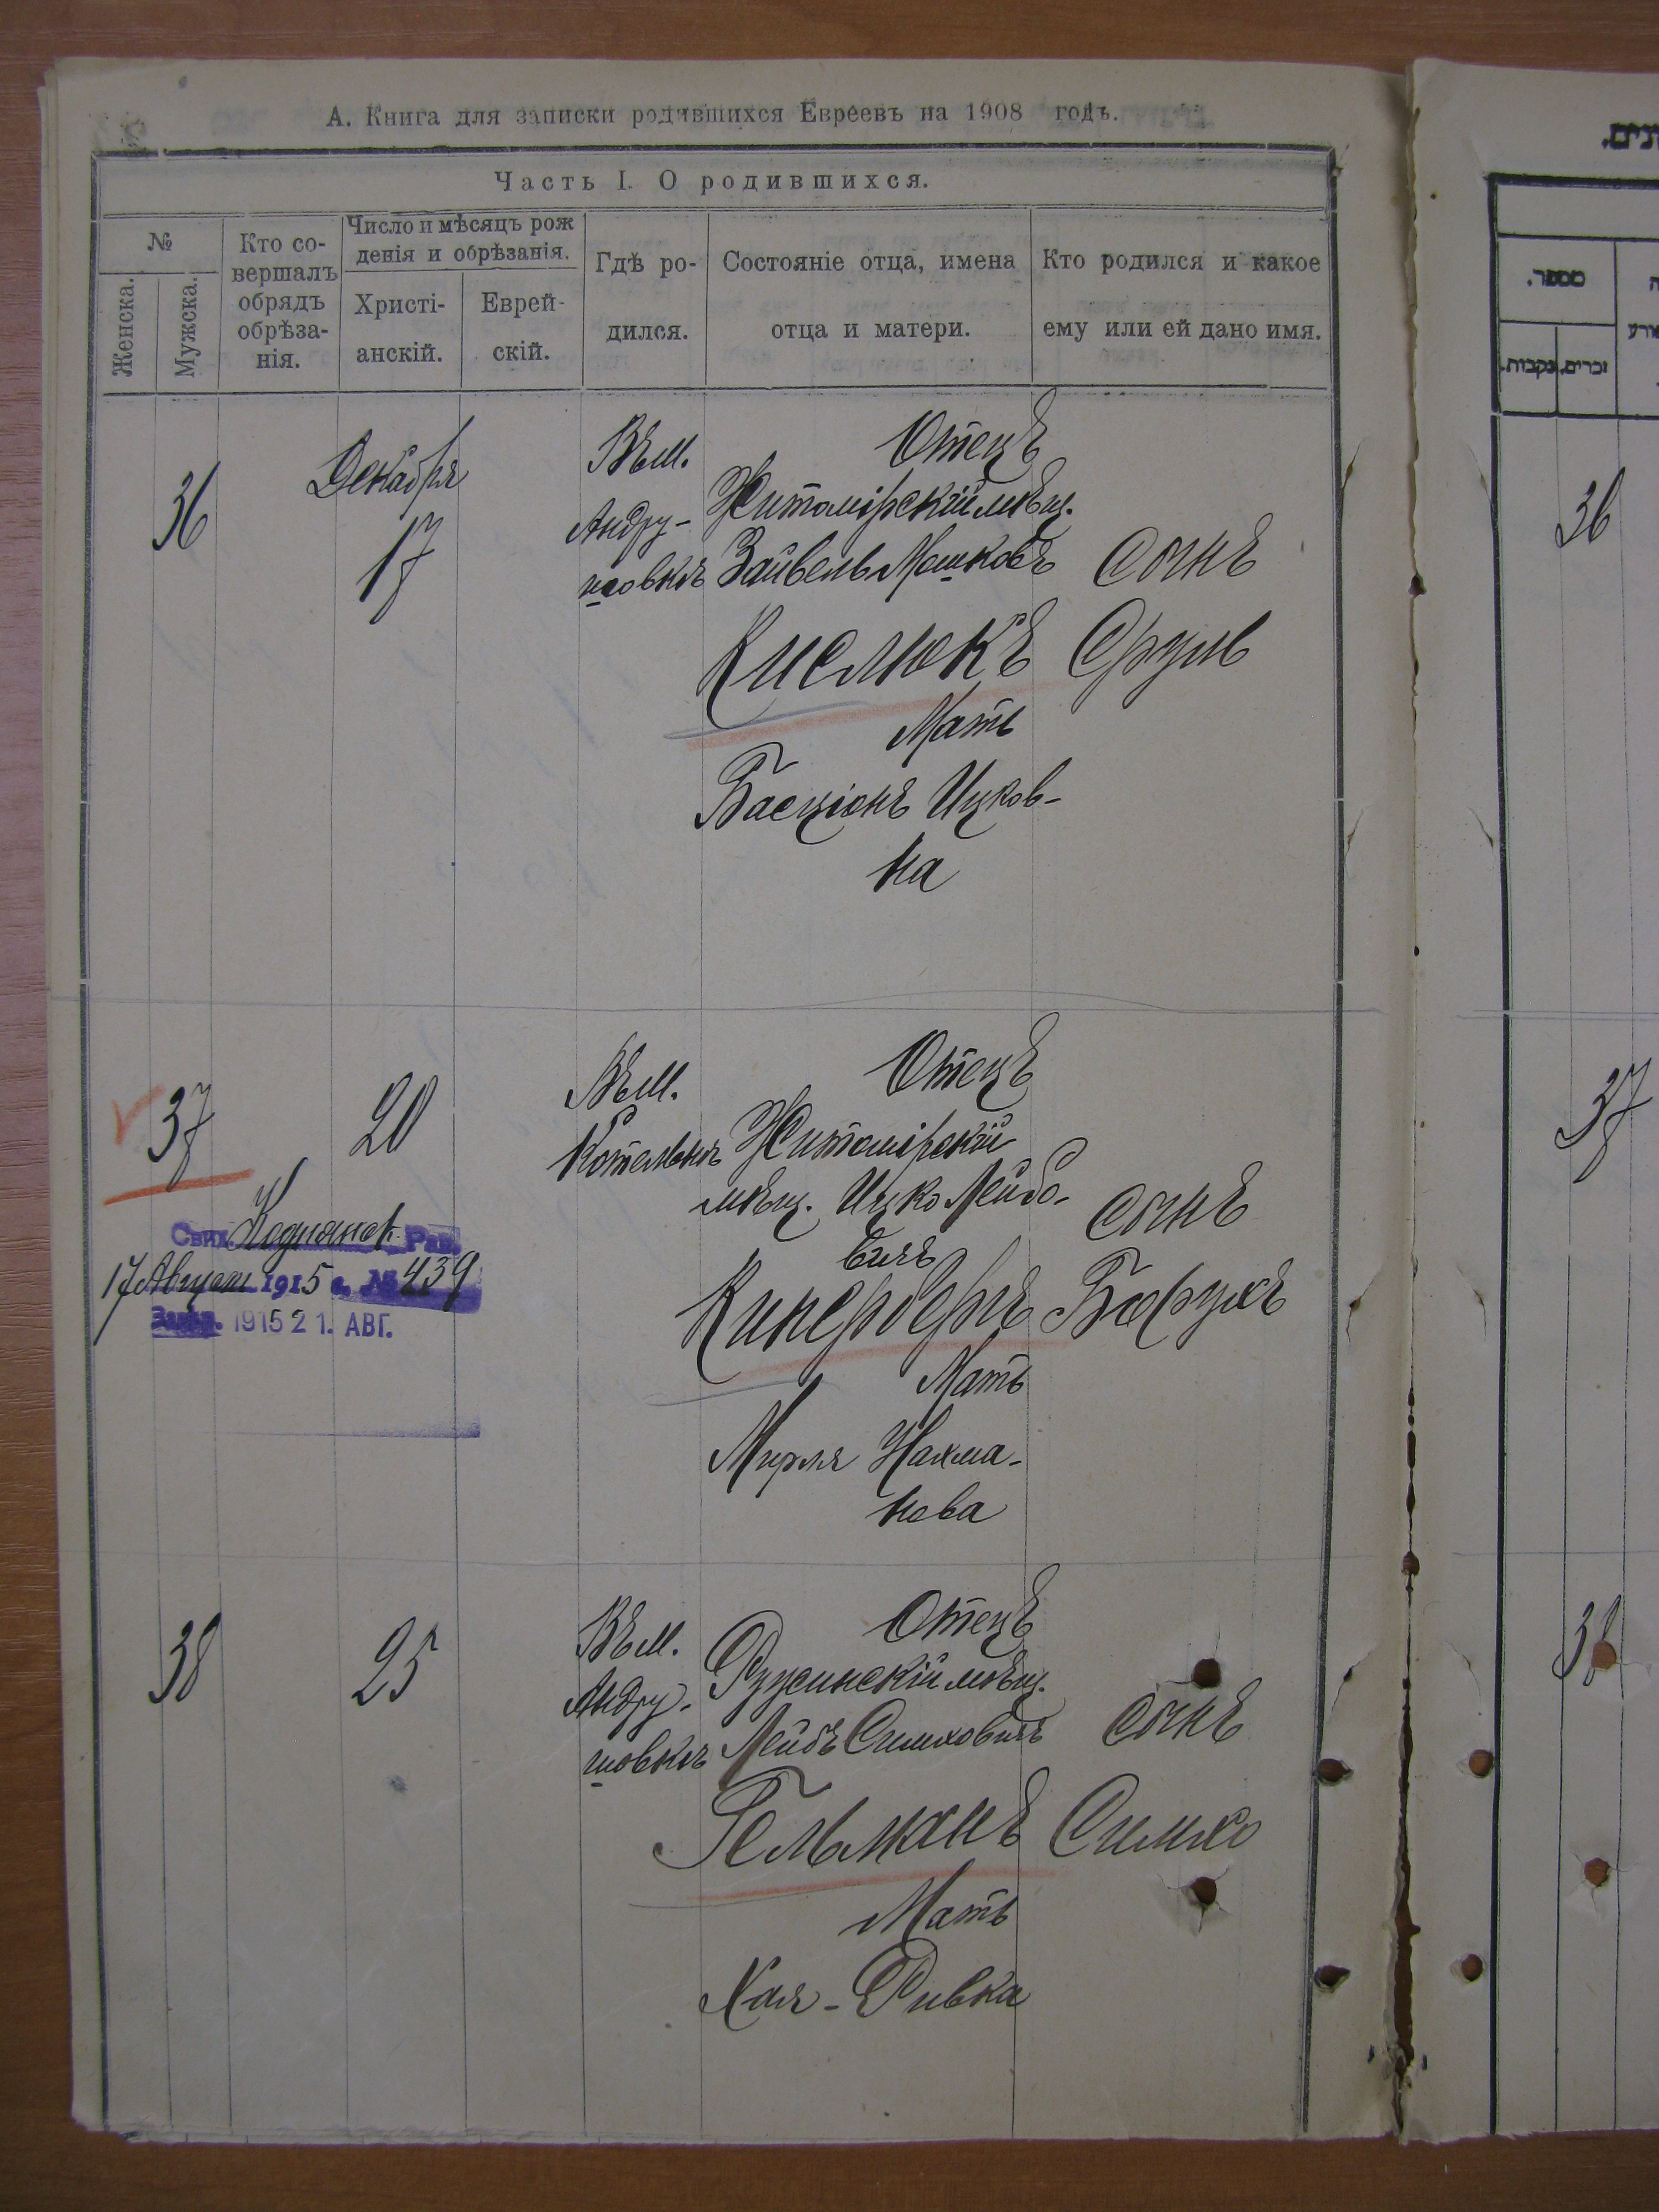 А. Книга для записки родившихся Евреевъ на 1908 годъ.
Часть I. О родившихся.
№
Женска.
Мужска.
Кто со-
вершалъ
обрядъ
обрѣза-
нія.
Число и мѣсяцъ рож
денія и обрѣзанія.
Христі-
анскій.
Еврей-
скій.
Гдѣ ро-
дился.
Состояніе отца, имена
отца и матери.
Кто родился и какое
ему или ей дано имя.
36
Декабря
17
Въ м.
Андру-
шовкѣ
Отецъ
Житомірскій мѣщ.
Зайвель Мошковъ
Кислюкъ
Мать
Басціонъ Ицков-
на
сынъ
Сруль
37
20
Свид. Коднянск. Рав.
17 Августа 1915 г. № 439
1915 21. АВГ.
Въ м.
Котельнѣ
Отецъ
Житомірскій
мѣщ. Ицко Лейбо-
вичъ
Мать
Мирля Нахма-
нова
сынъ
Борухъ
38
25
Въ м.
Андру-
шовкѣ
Отецъ
Ружинскій мѣщ.
Лейбъ Симховичъ
Гельманъ
Мать
Хая-Ривка
сынъ
Симхо
מספר.
זכרים.
נקבות.
36
37
38